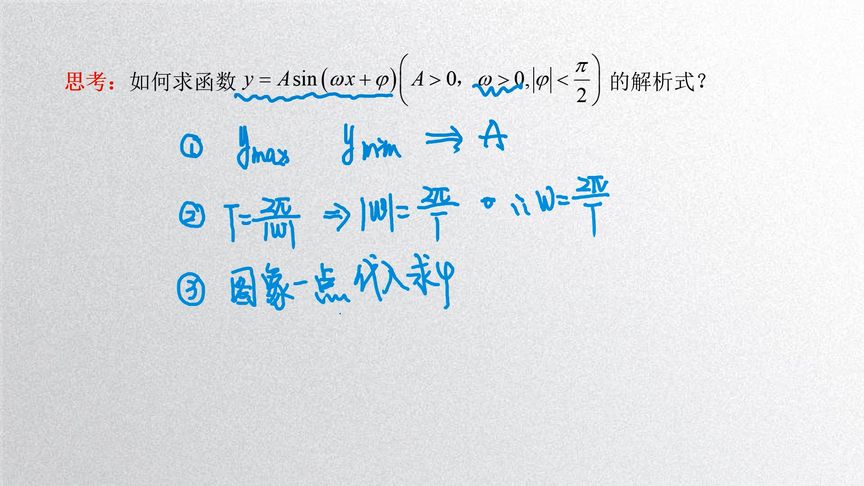 思考：如何求函数 y = Asin(ωx + φ)(A > 0，ω > 0,|φ| < π/2) 的解析式？
① ymax ymin ⇒ A
② T = 2π/|W| ⇒ |W| = 2π/T ∵ W = 2π/T
③ 图象一点代入求φ